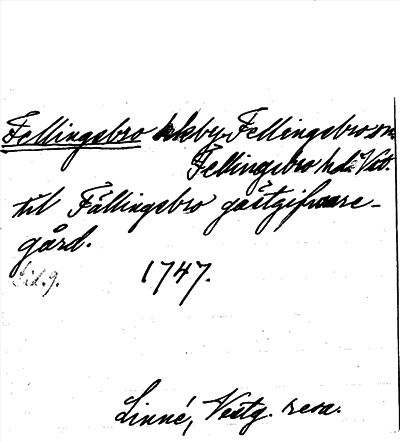 Fellingsbro kkby, Fellingsbro sn.
Fellingsbro hd. Vstl.
til Fällingsbro gästgifvare-
gård.
Sid. 9. 1747.
Linné, Vestg. resa.